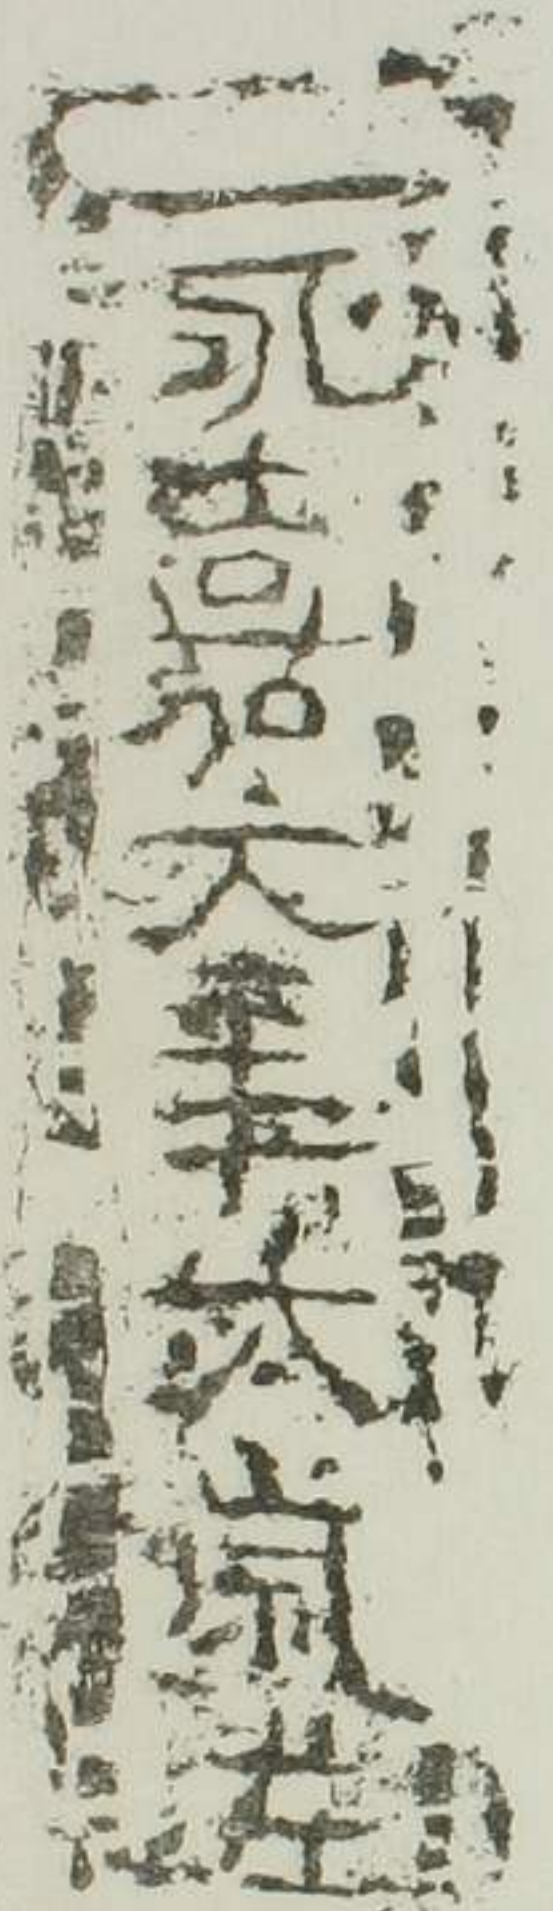 永嘉六年太歲在